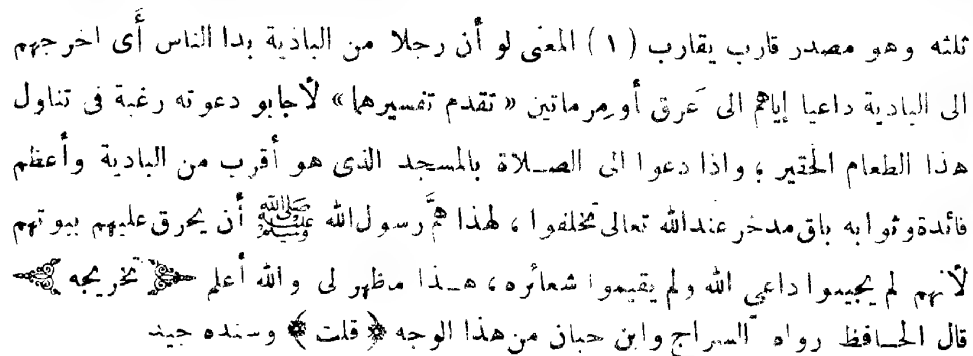 ثلثه وهو مصدر قارب يقارب (١) المعنى لو أن رجلا من البادية بدا الناس أَى اخرجهم
الى البادية داعيا إياهم الى عَرق أو مِرماتين «تقدم تفسيرهما» لأجابو دعوته رغبة فى تناول
هذا الطعام الحقير ؛ واذا دعوا الى الصلاة بالمسجد الذى هو أقرب من البادية وأعظم
فائدة وثوابه باق مدخر عند الله تعالى تخلفوا ، لهذا همَّ رسول الله ﷺ أن يحرق عليهم بيوتهم
لأنهم لم يجيبوا داعي الله ولم يقيموا شعائره ، هـذا مظهر لى والله أعلم ﴿ تخريجه ﴾
قال الحـافظ رواه السراج وابن حبان من هذا الوجه ﴿ قلت ﴾ وسنده جيد